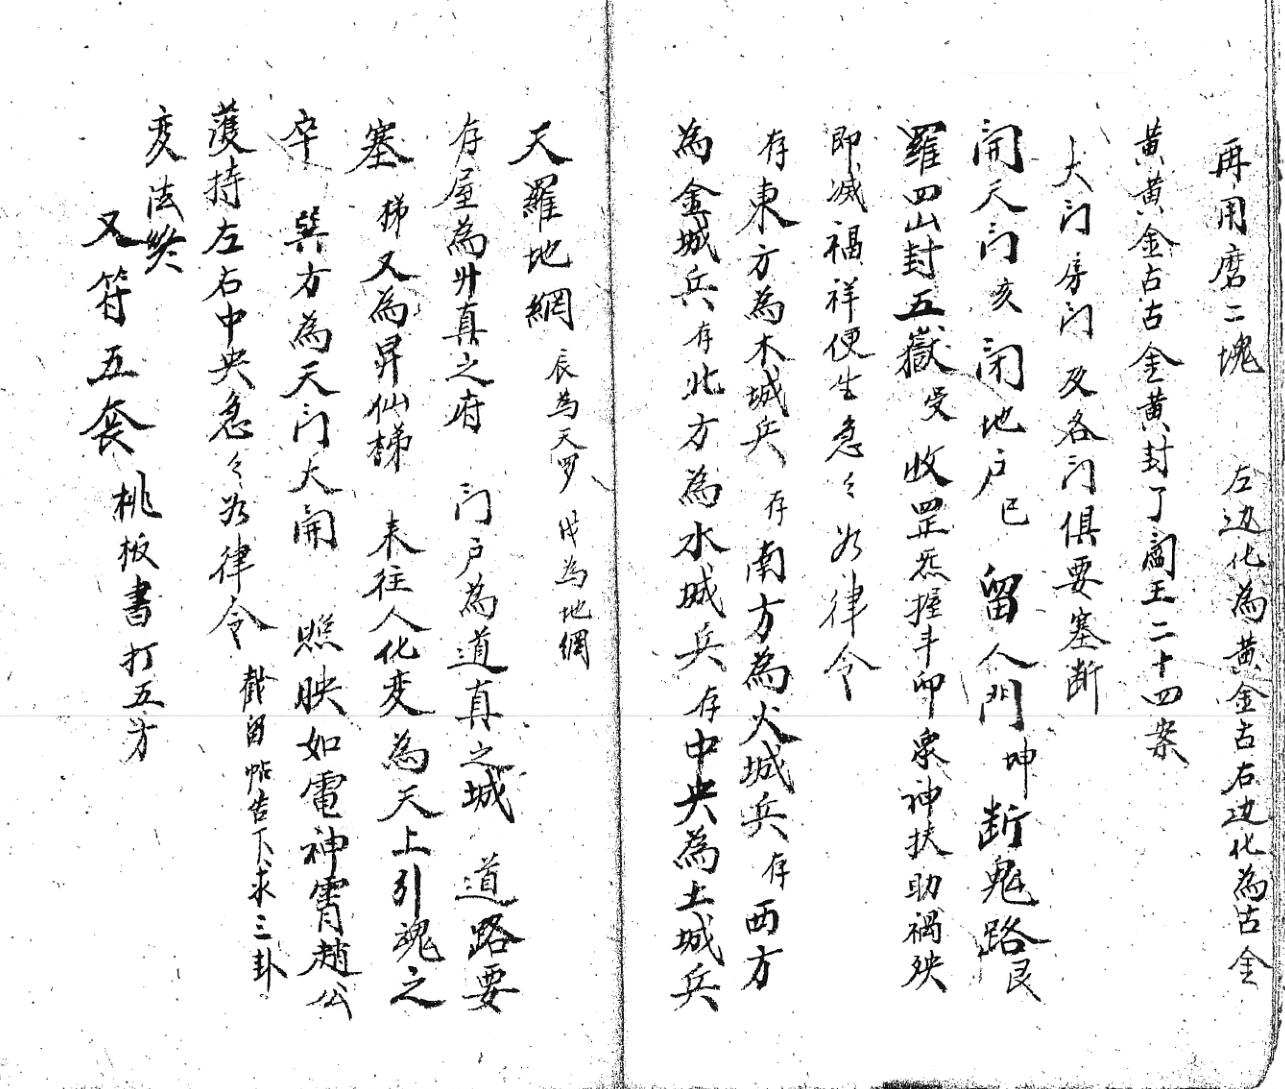 再用磨二塊 左边化為黃金古右边化為古金
黃黃金古古金黃封了閻王二十四案
大门房门及各门俱要塞断
開天门亥閉地户巳留人門坤断鬼路艮
羅四山封五嶽受收罡炁握斗印眾神扶助禍殃
即滅福祥便生急々如律令
存東方為木城兵 存南方為火城兵 存西方
為金城兵存北方為水城兵存中央為土城兵
天羅地網 辰為天罗 戌為地網
存屋為升真之府 门户為道真之城 道路要
塞 梯又為昇仙梯 來往人化变為天上引魂之
卒 巽方為天门大開 照映如電神霄趙公
護持左右中央急々如律令 截留帖告下求三卦
変法
又符五套桃板書打五方